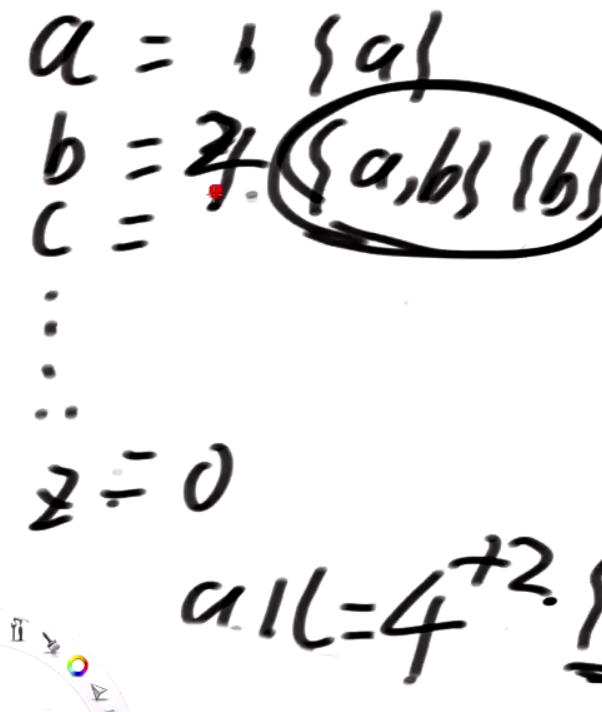 a = 1 {a}
b = 4 {a,b} {b}
c =
z = 0
all = 4 +2